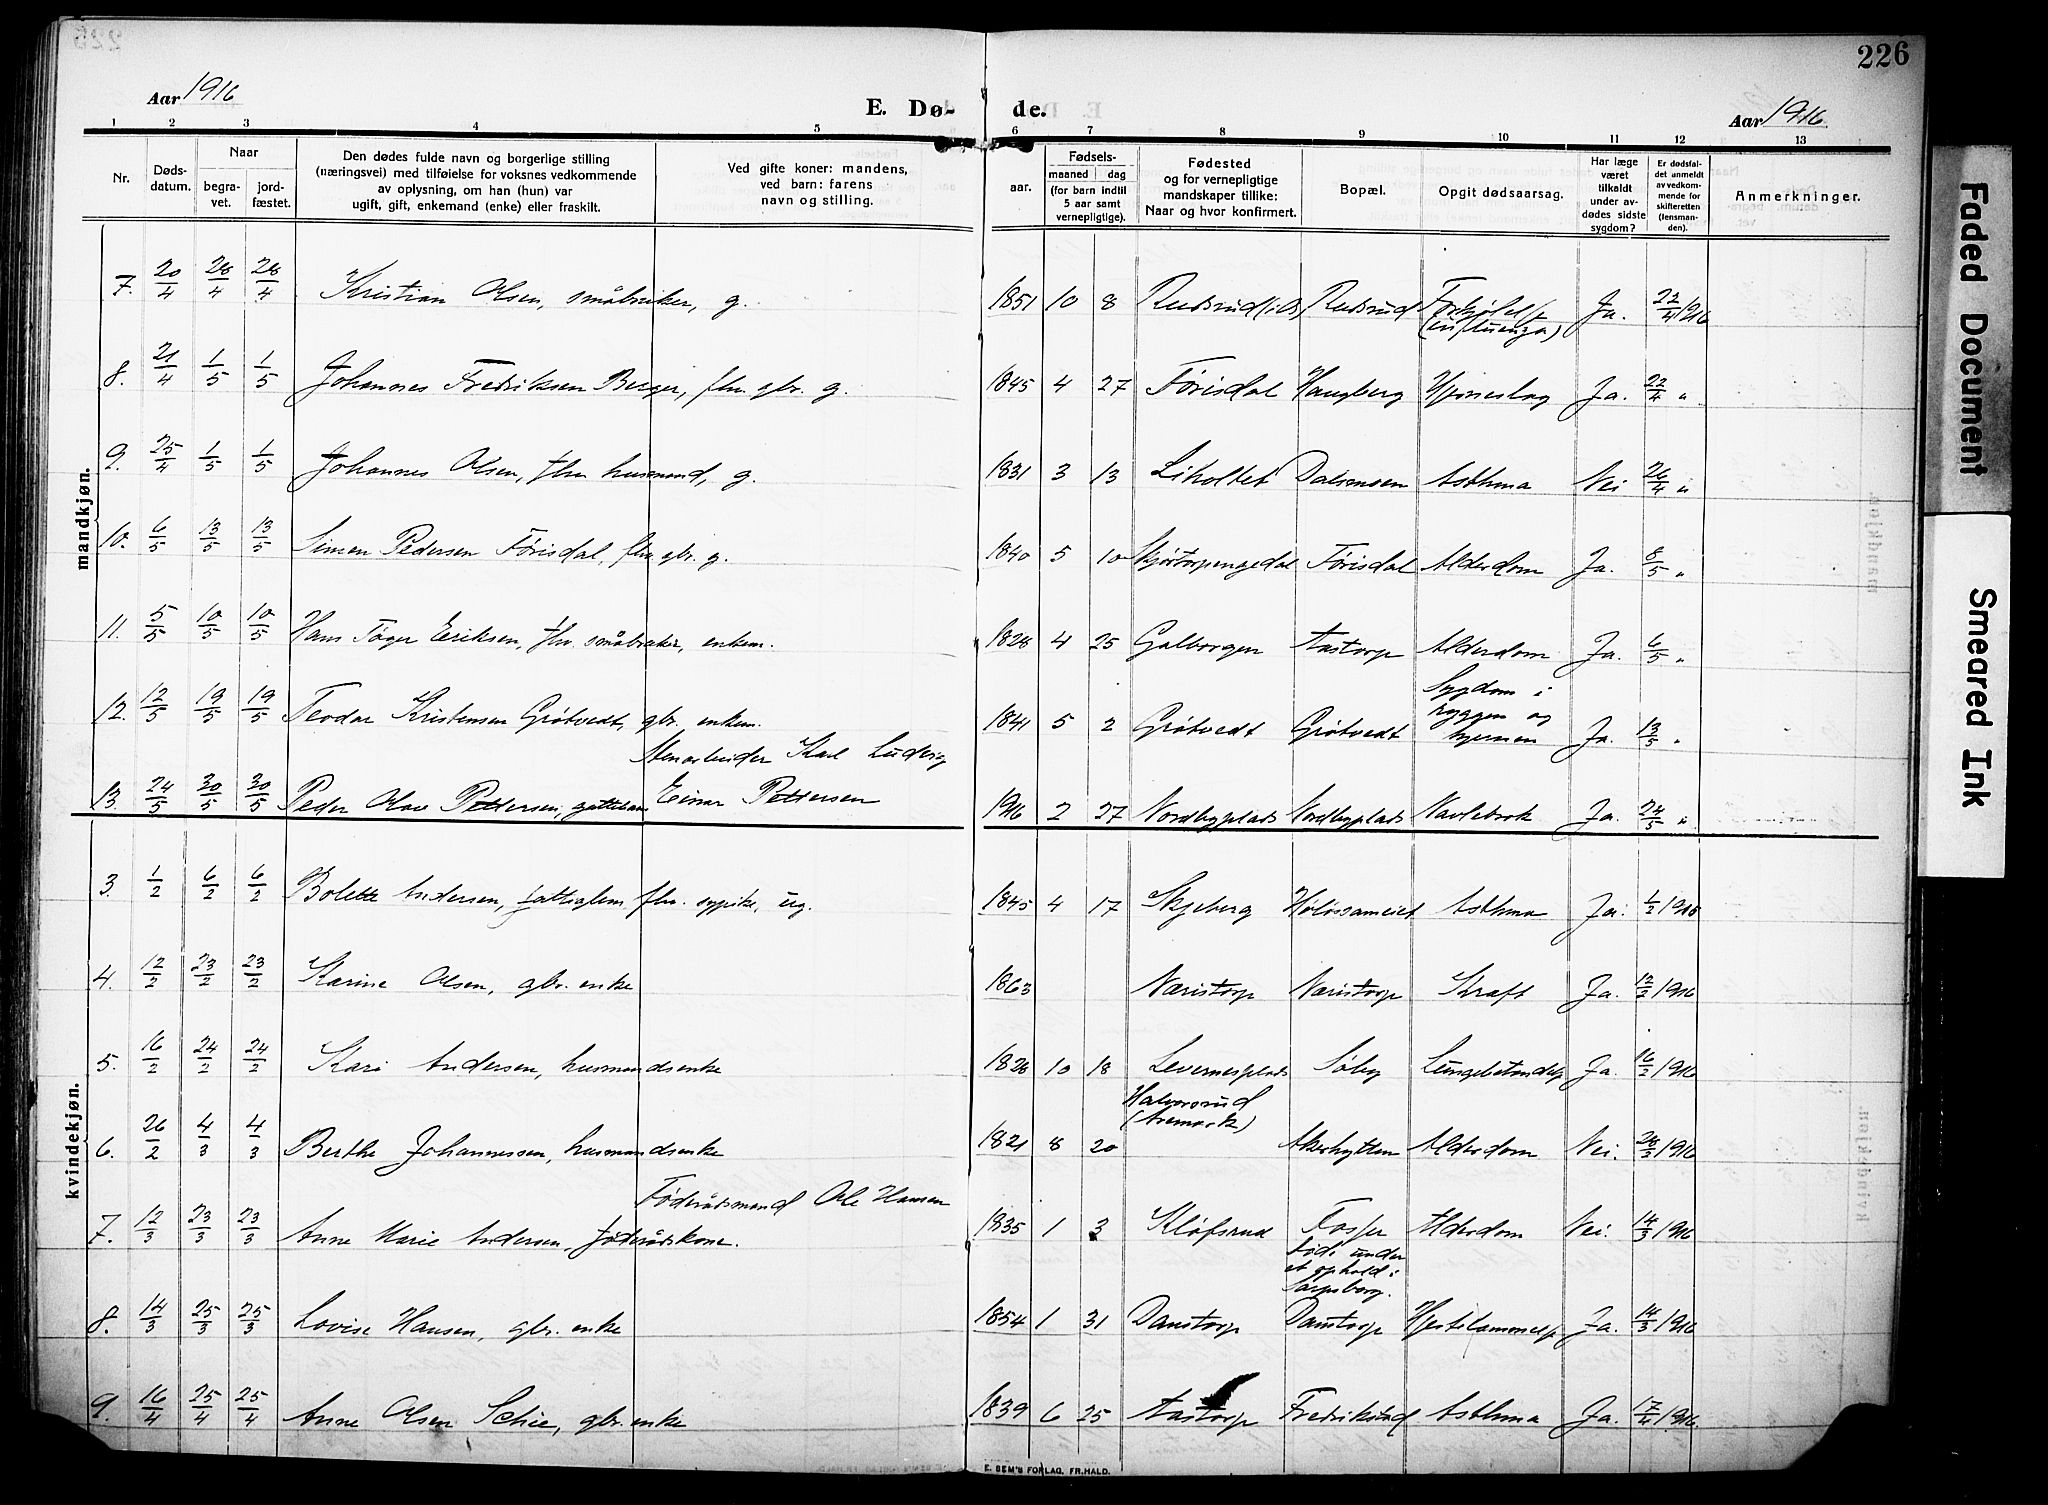 226
Aar 1916
E. Dø- de.
Aar 1916
1 2 3 4 5 6 7 8 9 10 11 12 13
Nr.
Døds-
datum.
Naar
begra-
vet.
jord-
fæstet.
Den dødes fulde navn og borgerlige stilling
(næringsvei) med tilføielse for voksnes vedkommende
av oplysning, om han (hun) var
ugift, gift, enkemand (enke) eller fraskilt.
Ved gifte koner: mandens,
ved barn: farens
navn og stilling.
Fødsels-
aar.
maaned
dag
(for barn indtil
5 aar samt
vernepligtige).
Fødested
og for vernepligtige
mandskaper tillike:
Naar og hvor konfirmert.
Bopæl.
Opgit dødsaarsag.
Har læge
været
tilkaldt
under av-
dødes sidste
sygdom?
Er dødsfal-
det anmeldt
av vedkom-
mende for
skifteretten
(lensman-
den).
Anmerkninger.
mandkjøn.
7. 20/4 28/4 28/4 Kristian Olsen, småbruker, g. 1851 10 8 Rudsrud Ja. 22/4 1916
(influenza)
8. 21/4 1/5 1/5 Johannes Fredriksen Berger, fhv. gbr. g. 1845 4 27 Førisdal Haugberg Hjerneslag Ja. 22/4 "
9. 25/4 1/5 1/5 Johannes Olsen, fhv. husmand, g. 1831 3 13 Liholtet Asthma Nei 26/4 "
10. 6/5 13/5 13/5 Simen Pedersen Førisdal, fhv. gbr. g. 1840 5 10 Skjørtorpengedal Førisdal Alderdom Ja. 8/5 "
11. 5/5 10/5 10/5 Hans Tøger Eriksen, fhv. småbruker, enkem. 1828 4 25 Galborgen Aastorp Alderdom Ja. 6/5 "
12. 12/5 19/5 19/5 Teodor Kristensen Grøtvedt, gbr. enkem. 1841 5 2 Grøtvedt Grøtvedt Sygdom i
ryggen og
hjernen Ja. 13/5 "
Stenarbeider Karl Ludvig
13. 24/5 30/5 30/5 Peder Olav Pettersen, guttebarn Einar Pettersen 1916 2 27 Nordbyplads Nordbyplads Navlebrok Ja. 24/5 "
kvindekjøn.
3. 1/2 6/2 6/2 Bolette Andersen, fattiglem, fhv. sypike, ug. 1845 4 17 Skjeberg Høiøssameiet Asthma Ja. 1/2 1916
4. 12/2 23/2 23/2 Karine Olsen, gbr. enke 1863 Næristorp Næristorp Kræft Ja. 12/2 1916
5. 16/2 24/2 24/2 Kari Andersen, husmandsenke 1826 10 18 Levernesplads Søby Lungebetændelse Ja. 16/2 1916
Halvorsrud
(Aremark)
6. 26/2 4/3 4/3 Berthe Johannessen, husmandsenke 1821 8 20 Akerhytten Alderdom Nei. 28/2 1916
Føderådsmand Ole Hansen
7. 12/3 23/3 23/3 Anne Marie Andersen, føderådskone. 1835 1 3 Kløfsrud Fosser Alderdom Nei. 14/3 1916
død under
et ophold i
Sarpsborg.
8. 14/3 25/3 25/3 Lovise Hansen, gbr. enke 1854 1 31 Danstorp Danstorp Hjertelammelse Ja. 14/3 1916
9. 16/4 25/4 25/4 Anne Olsen Schie, gbr. enke 1839 6 25 Aastorp Fredrikstad Asthma Ja. 17/4 1916.
E. SEM'S FORLAG, FR.HALD.
Faded Document
Smeared Ink